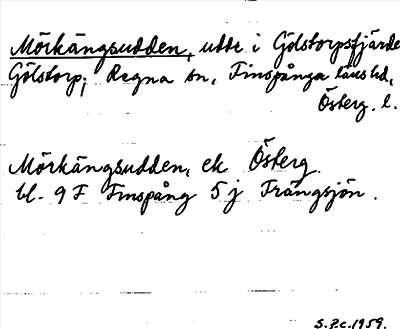 Mörkängsudden, udde i Gölstorpsfjärde
Gölstorp; Regna sn, Finspånga läns hd,
Österg. l.
Mörkängsudden, ek Österg.
bl. 9 F Finspång 5 j Trängsjön.
S.P.c. 1959.